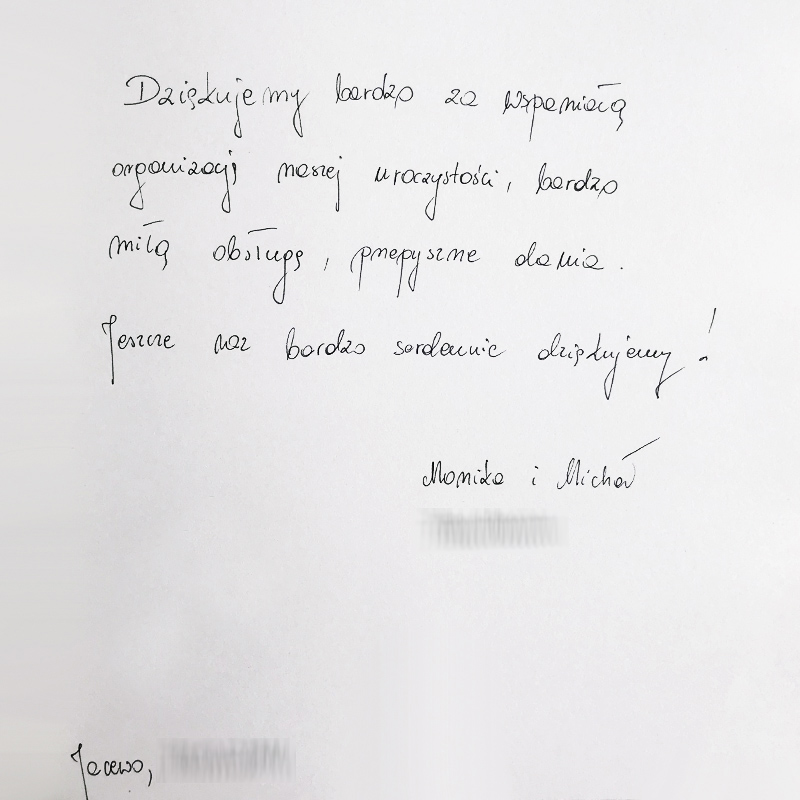 Dziękujemy bardzo za wspaniałą
organizację naszej uroczystości, bardzo
miłą obsługę, przepyszne dania.
Jeszcze raz bardzo serdecznie dziękujemy!
Monika i Michał
Jacewo,